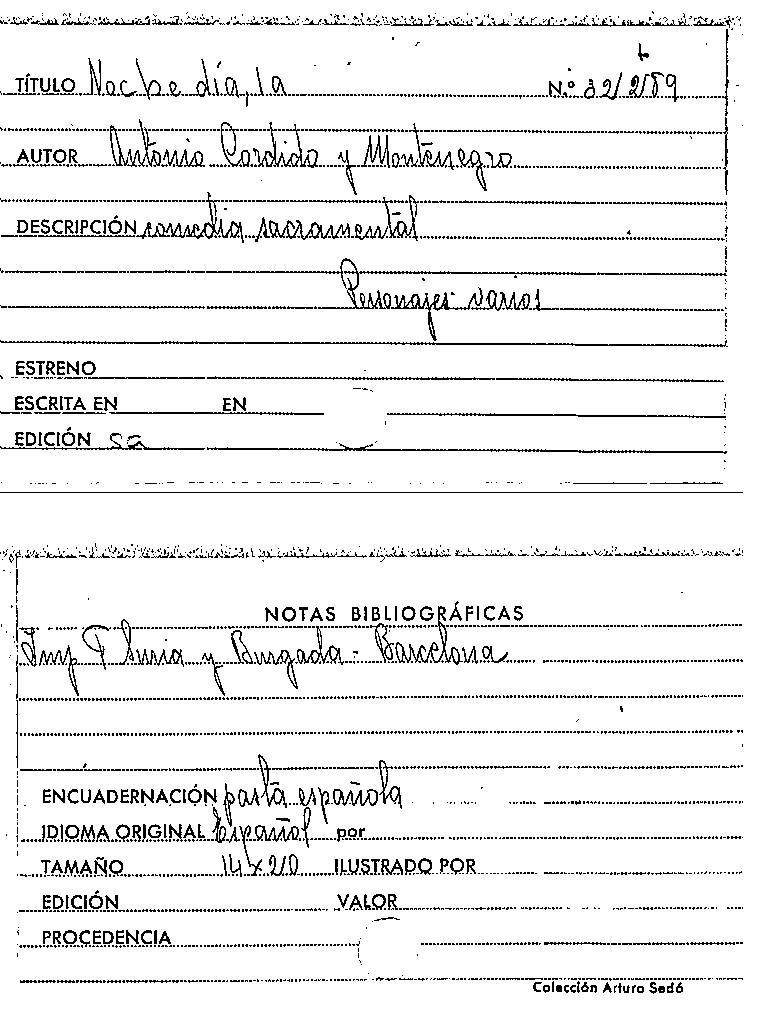 TÍTULO Noche día, la Nº 32/2/89
AUTOR Antonio Cordido y Montenegro
DESCRIPCIÓN comedia sacramental
Personajes varios
ESTRENO
ESCRITA EN EN
EDICIÓN sa
NOTAS BIBLIOGRÁFICAS
Imp F Suria y Burgada - Barcelona
ENCUADERNACIÓN pasta española
IDIOMA ORIGINAL Español por
TAMAÑO 14x20 ILUSTRADO POR
EDICIÓN VALOR
PROCEDENCIA
Colección Arturo Sedó